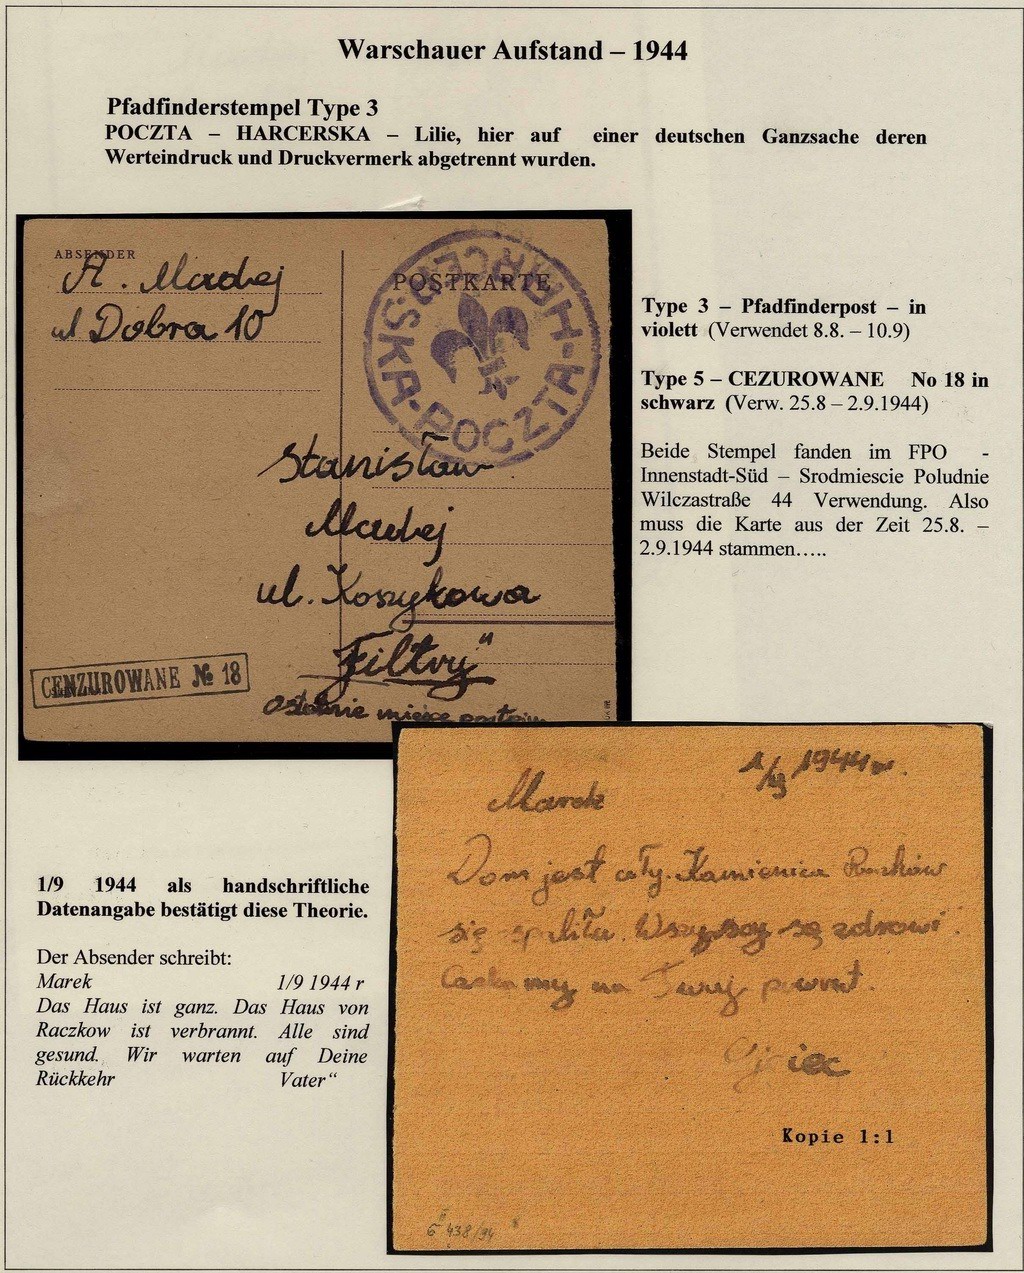 Warschauer Aufstand – 1944
Pfadfinderstempel Type 3
POCZTA – HARCERSKA – Lilie, hier auf einer deutschen Ganzsache deren
Werteindruck und Druckvermerk abgetrennt wurden.
ABSENDER
A. Madej
ul Dobra 10
POSTKARTE
HARCERSKA-POCZTA-
Stanisław
Madej
ul. Koszykowa
"Filtry"
CENZUROWANE № 18
Type 3 – Pfadfinderpost – in
violett (Verwendet 8.8. – 10.9)
Type 5 – CEZUROWANE No 18 in
schwarz (Verw. 25.8 – 2.9.1944)
Beide Stempel fanden im FPO -
Innenstadt-Süd – Srodmiescie Poludnie
Wilczastraße 44 Verwendung. Also
muss die Karte aus der Zeit 25.8. –
2.9.1944 stammen…..
1/9 1944 als handschriftliche
Datenangabe bestätigt diese Theorie.
Der Absender schreibt:
Marek 1/9 1944 r
Das Haus ist ganz. Das Haus von
Raczkow ist verbrannt. Alle sind
gesund. Wir warten auf Deine
Rückkehr Vater“
1/9 1944 r.
Marek
Dom jest cały. Kamienica
się spaliła. Wszyscy są zdrowi.
my na Twój powrót.
Ojciec
Kopie 1:1
G 438/94